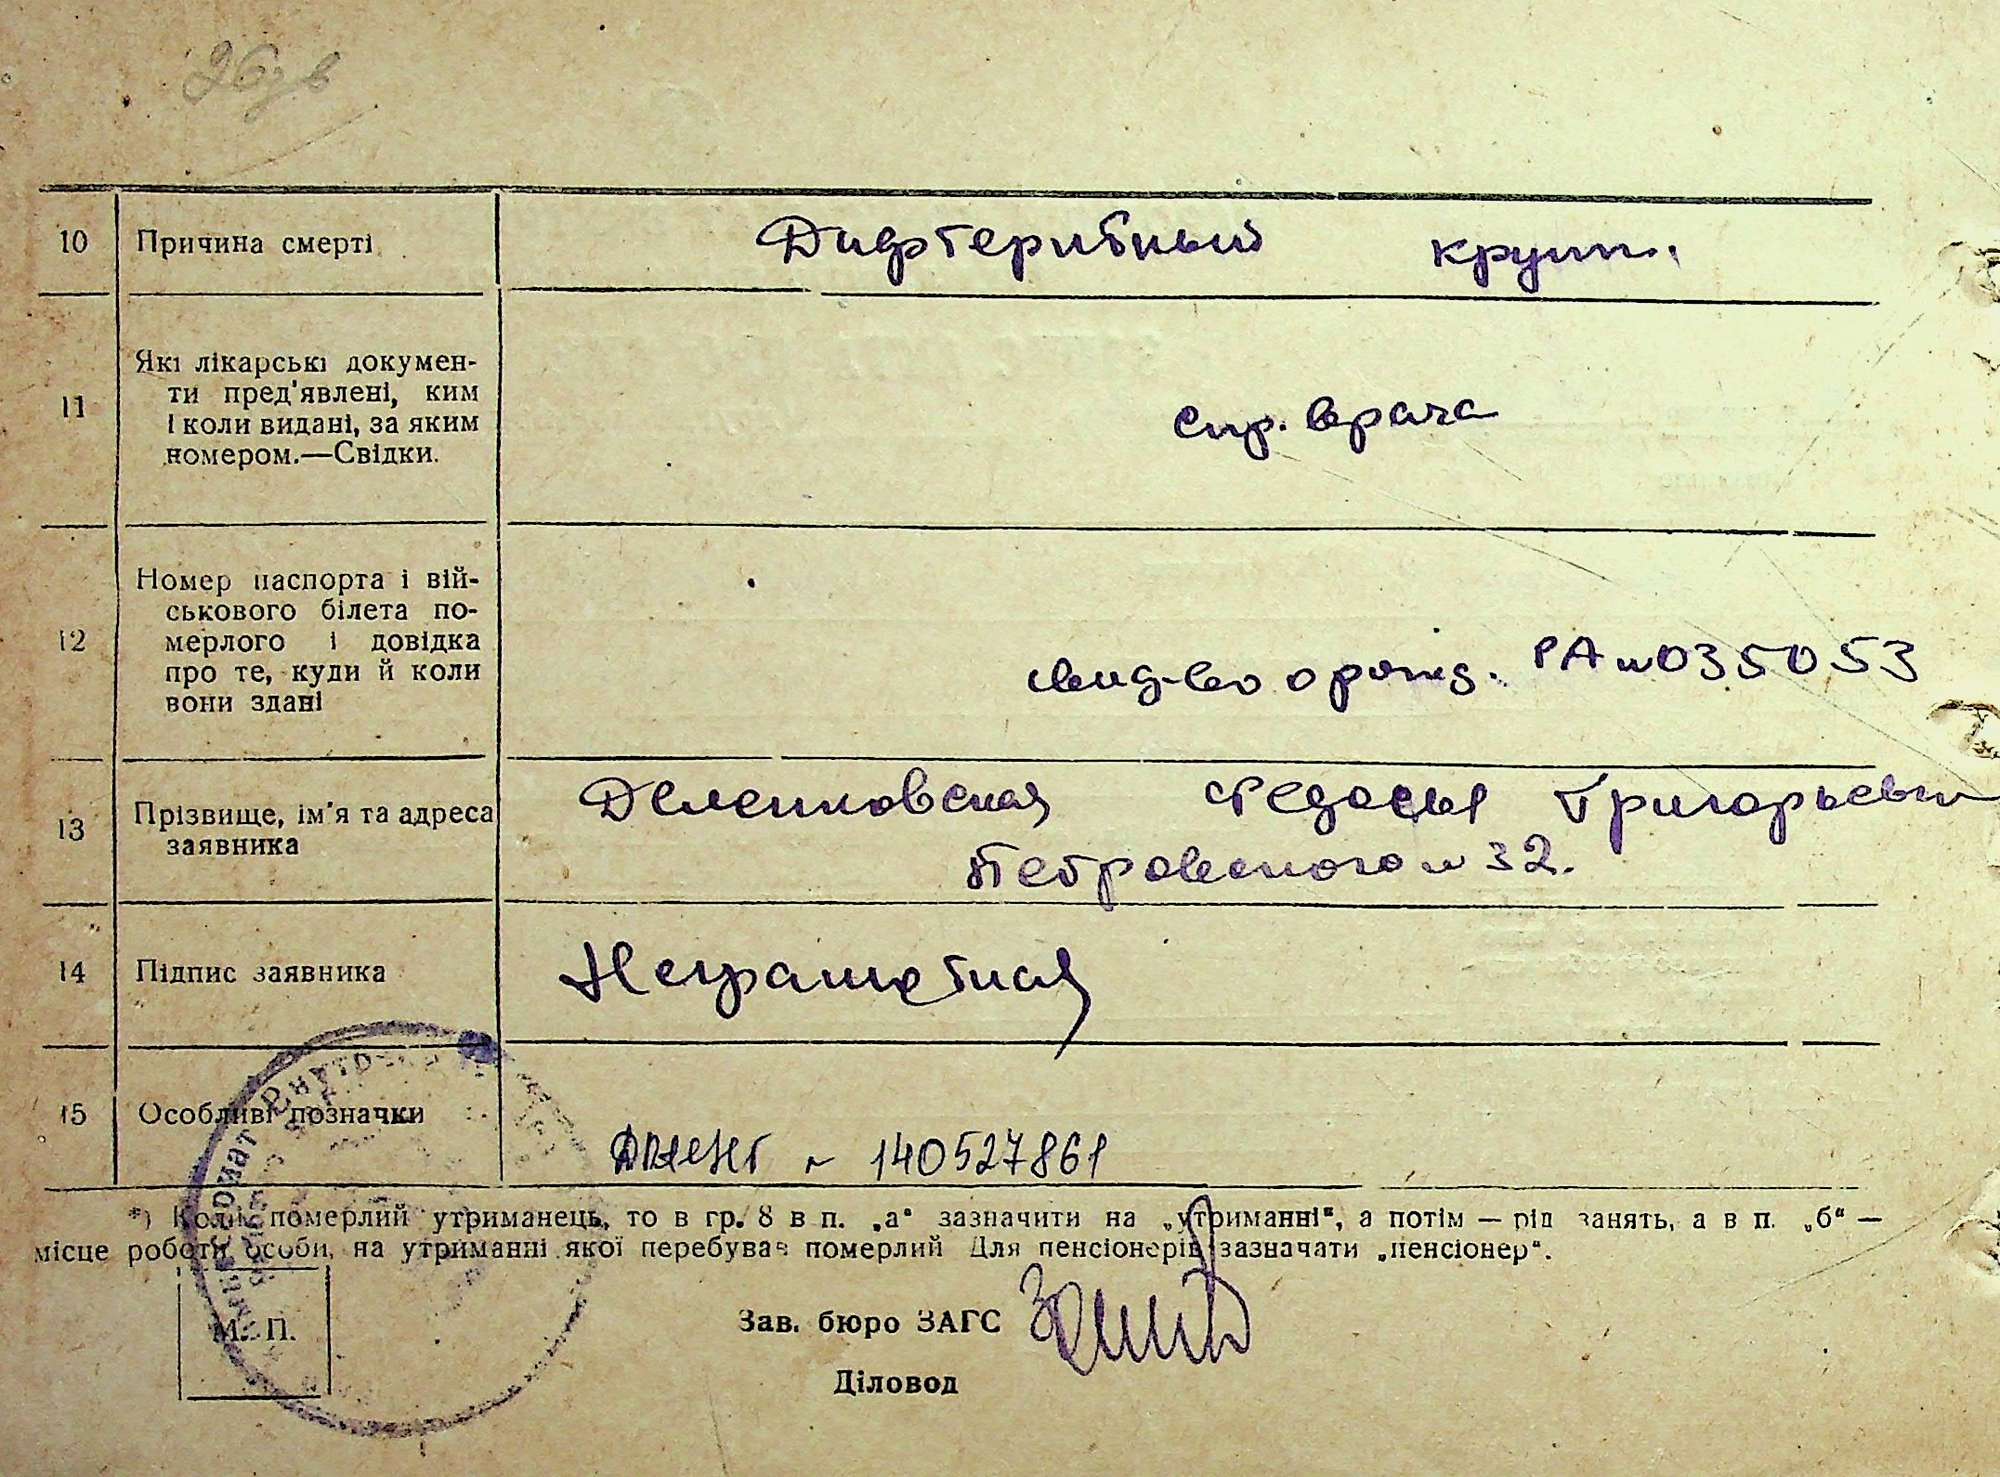 26зв
10 Причина смерті Дифтерийный круп.
11 Які лікарські докумен-
ти пред'явлені, ким
і коли видані, за яким
номером.—Свідки.
Спр. врача
12 Номер паспорта і вій-
ськового білета по-
мерлого і довідка
про те, куди й коли
вони здані
свид-во о рожд. РА № 035053
13 Прізвище, ім'я та адреса
заявника
Федосья Григорьевн
Петровского № 32.
14 Підпис заявника Неграмотная
15 Особливі позначки
№ 140527861
*) Коли померлий утриманець, то в гр. 8 в п. „а“ зазначити на „утриманні“, а потім — рід занять, а в п. „б“ —
місце роботи особи, на утриманні якої перебував померлий Для пенсіонерів зазначати „пенсіонер“.
М. П.
Зав. бюро ЗАГС
Діловод